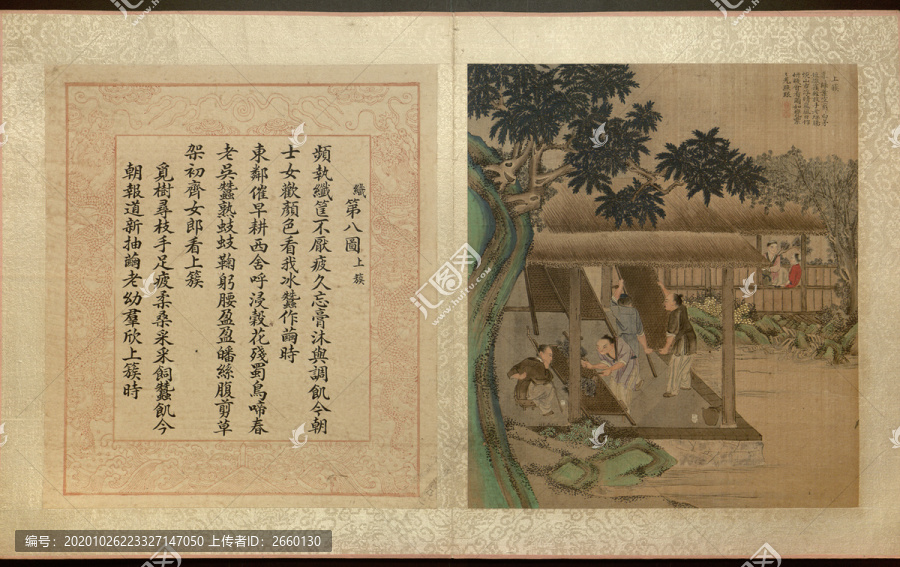 織第八圖上簇
頻執纖筐不厭疲久忘膏沐與調飢今朝
士女歡顏色看我冰蠶作繭時
東鄰催早耕西舍呼浸穀花殘蜀鳥啼春
老吳蠶熟蚑蚑鞠躬腰盈盈皤絲腹剪草
架初齊女郎看上簇
覓樹尋枝手足疲柔桑采采飼蠶飢今
朝報道新抽繭老幼羣欣上簇時
上簇
汇图网
www.huitu.com
编号:20201026223327147050 上传者ID:2660130